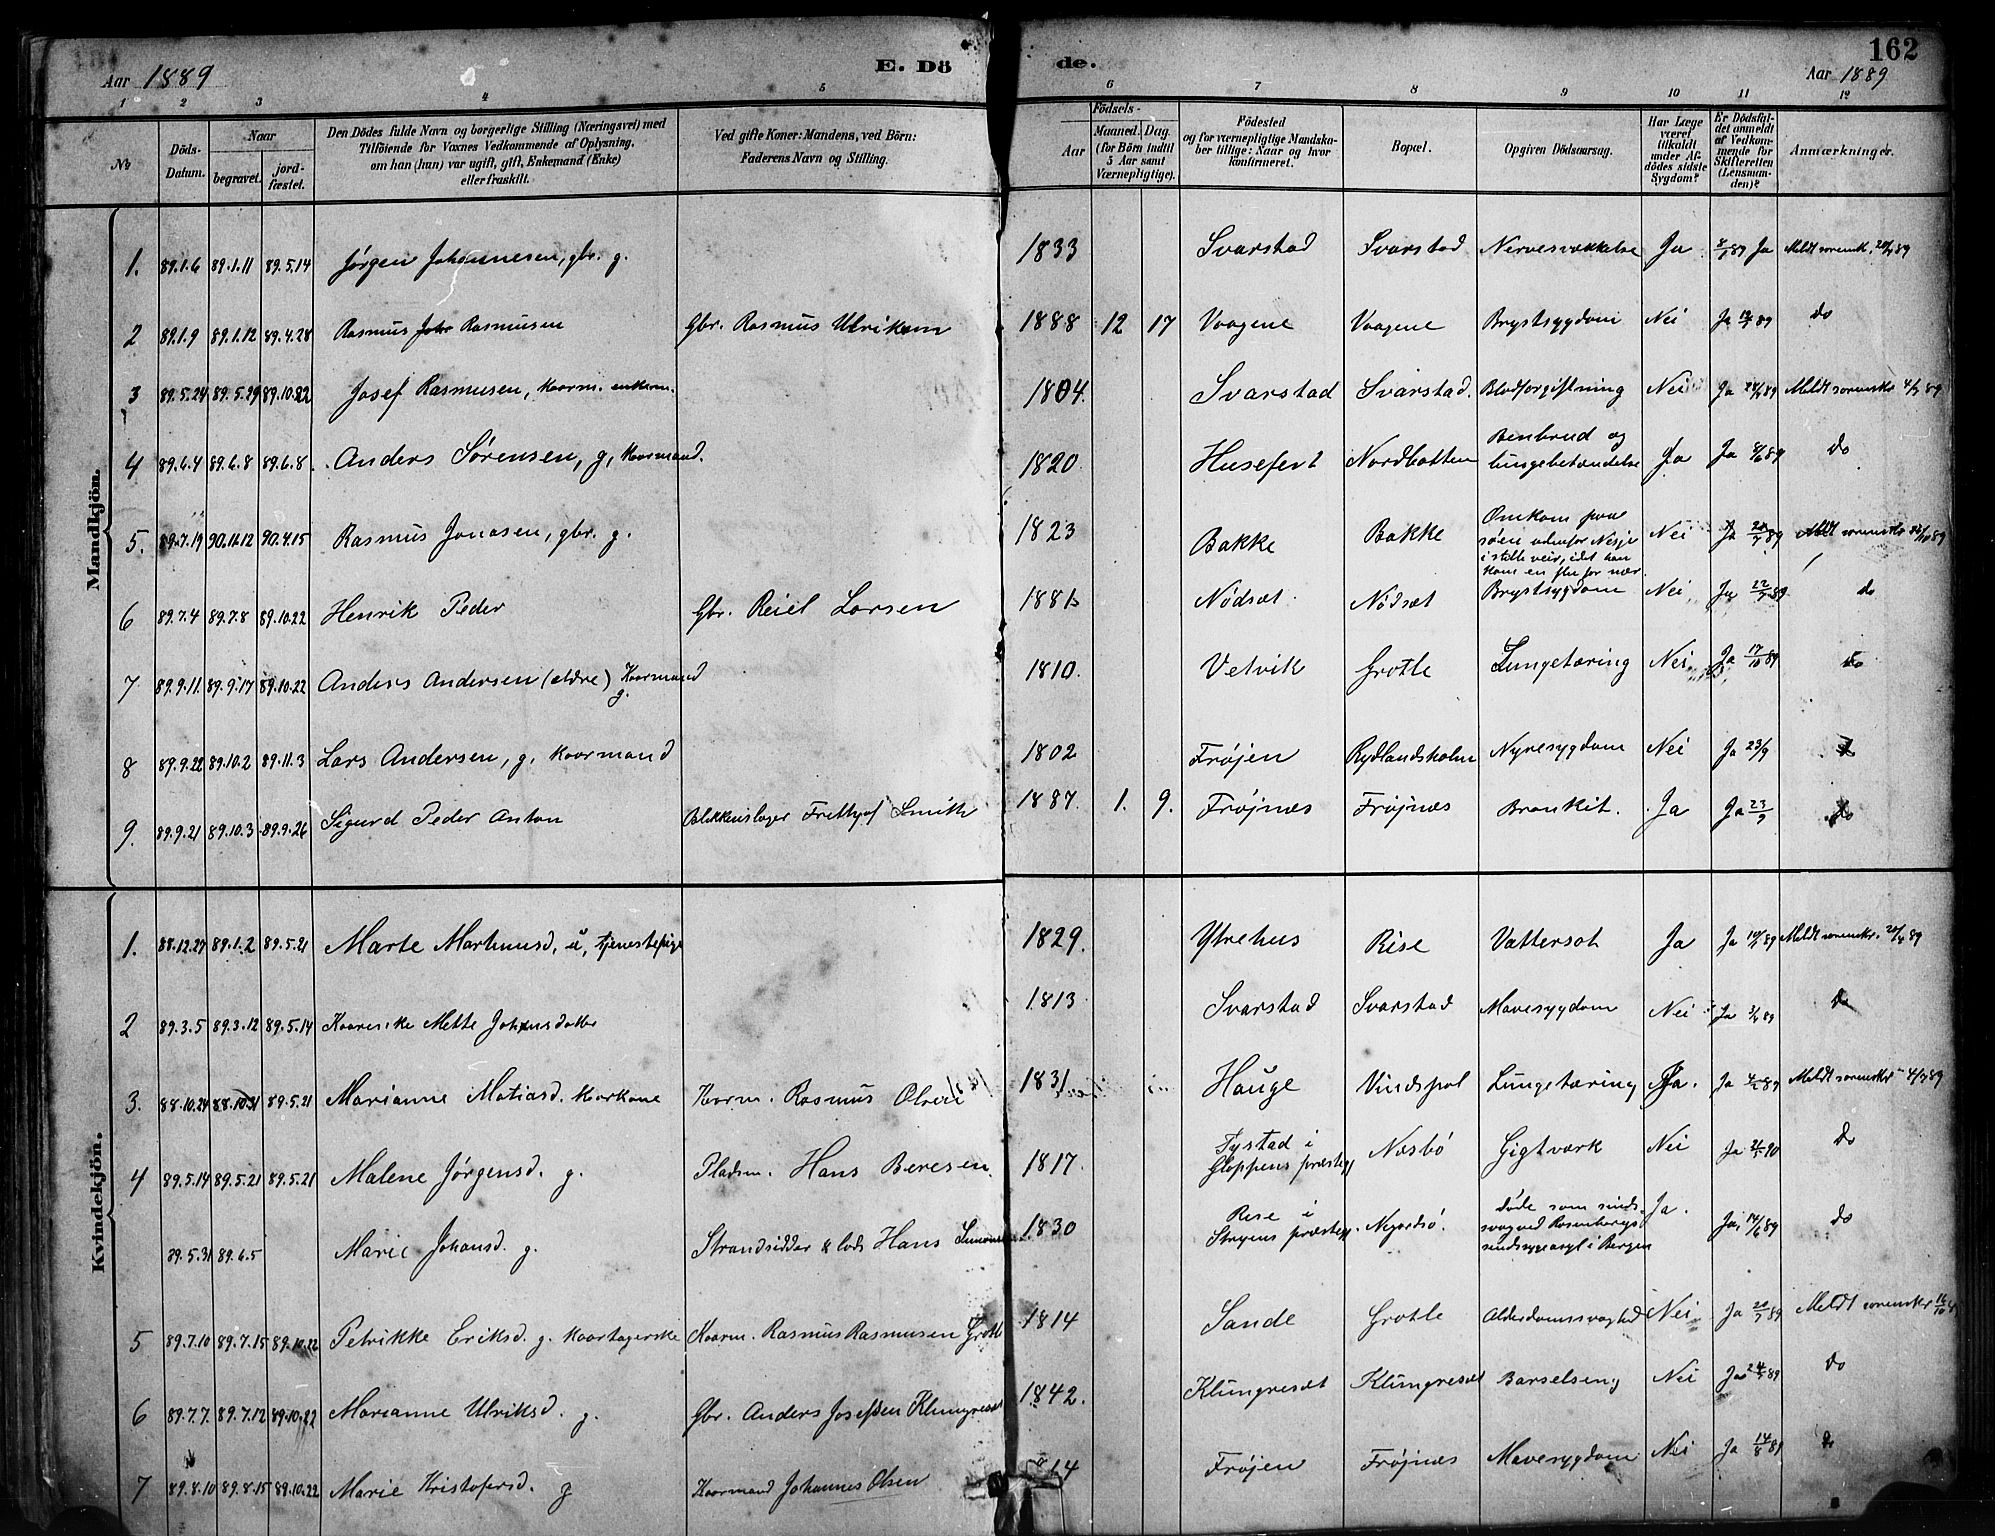 162
E. Dö de.
Aar 1889
Aar 1889
1 2 3 4 5 6 7 8 9 10 11 12
No
Döds-Datum.
Naar
begravet.
jordfæstet.
Den Dödes fulde Navn og borgerlige Stilling (Næringsvei) med
Tilföiende for Voxnes Vedkommende af Oplysning,
om han (hun) var ugift, gift, Enkemand (Enke)
eller fraskilt.
Ved gifte Koner: Mandens, ved Börn:
Faderens Navn og Stilling.
Födsels-
Aar
Maaned. Dag.
(for Börn indtil
5 Aar samt
Værnepligtige).
Födested
og for værnepligtige Mandska-
ber tillige: Naar og hvor
konfirmeret.
Bopæl.
Opgiven Dödsaarsag.
Har Læge
været
tilkaldt
under Af-
dödes sidste
Sygdom?
Er Dödsfal-
det anmeldt
af Vedkom-
mende for
Skifteretten
(Lensman-
den)?
Anmærkninger.
Mandkjön.
1. 89.1.6 89.1.11 89.5.14 Jørgen Johannesen, gbr. g. 1833 Svarstad Svarstad Nervesvækkelse Ja 8/1 89 Ja Meldt sorenskr.
2 89.1.9 89.1.12 89.4.28 Rasmus Rasmusen Gbr. Rasmus Ulriksen 1888 12 17 Vaagene Vaagene Brystsygdom Nei Ja do
3 89.5.24 89.5.29 89.10.22 Josef Rasmusen, Kaarm. enkem. 1804. Svarstad Svarstad. Blodforgiftning Nei Ja Meldt sorenskr
4 89.6.4 89.6.8 89.6.8. Anders Sørensen, g, Kaarmand. 1820 Husefest Nordbotten Benbrud og
lungebetændelse Ja Ja do
5. 89.7.19 90.4.15 Rasmus Jonasen, gbr. g. 1823 Bakke Bakke Omkom paa
søen udenfor Nesje
i stille veir, idet han
kom en flu for nær Nei Ja Meldt sorenskr
6 89.7.4 89.7.8 89.10.22 Henrik Peder Gbr. Reiel Larsen 1881 Nødsæt Nødsæt Brystsygdom Nei Ja 22/7 89 do
7 89.9.11. 89.9.17 89.10.22 Anders Andersen (ældre) Kaarmand
g. 1810. Vetvik Grotle Lungetæring Nei Ja 17/10 89 do
8 89.9.22 89.10.2 89.11.3 Lars Andersen, g, Kaarmand 1802 Frøjen Rydlandsholm Nyresygdom Nei Ja 23/9
9. 89.9.21 89.10.3 89.9.26 Sigurd Peder Anton Blikkenslager Frithjof Smith 1887. 1. 9. Frøjnæs Frøjnæs Bronkit. Ja Ja 23/9 do
Kvindekjön.
1. 88.12.27 89.1.2 89.5.21 Marte Martinusd, u, tjenestepige 1829. Ytrehus Rise Vattersot Ja Ja Meldt sorenskr.
2 89.3.5 89.3.12 89.5.14 Mette 1813 Svarstad Svarstad Mavesygdom Nei Ja do
3. 88.10.24 88.10.31 89.5.21 Marianne Matiasd. Kaarkone Kaarm. Rasmus Olsen 1831 Hauge Vindspol Lungetæring Ja. Ja Meldt sorenskr
4 89.5.14 89.5.21 89.5.21 Malene Jørgensd. g. Pladsm. Hans Beresen 1817. i
Gloppens præstegj Næsbø Gigtværk Nei Ja do
89.5.31 89.6.5 Marie Johansd. g. Strandsidder & lods Hans 1830 Rise i
Stryens præstegj. døde som sinds-
svag ved Rosenbergs
sindssygeasyl i Bergen Ja. Ja 14/6 89 do
5 89.7.10 89.7.15 89.10.22 Petrikke Eriksd. g. Kaartagerske Kaarm. Rasmus Rasmusen Grotle 1814 Sande Grotle Alderdomssvaghed Nei Ja 20/7 89 Meldt sorenskr
6 89.7.7. 89.7.12 89.10.22 Marianne Ulriksd. g. Gbr. Anders Josefsen Klungresæt 1842. Klungresæt Klungresæt Barselseng Nei Ja do
7 89.8.10 89.8.15 89.10.22 Marie Kristofersd. g Kaarmand Johannes Olsen Frøjen Frøjnæs Mavesygdom Nei Ja 14/8 89 do